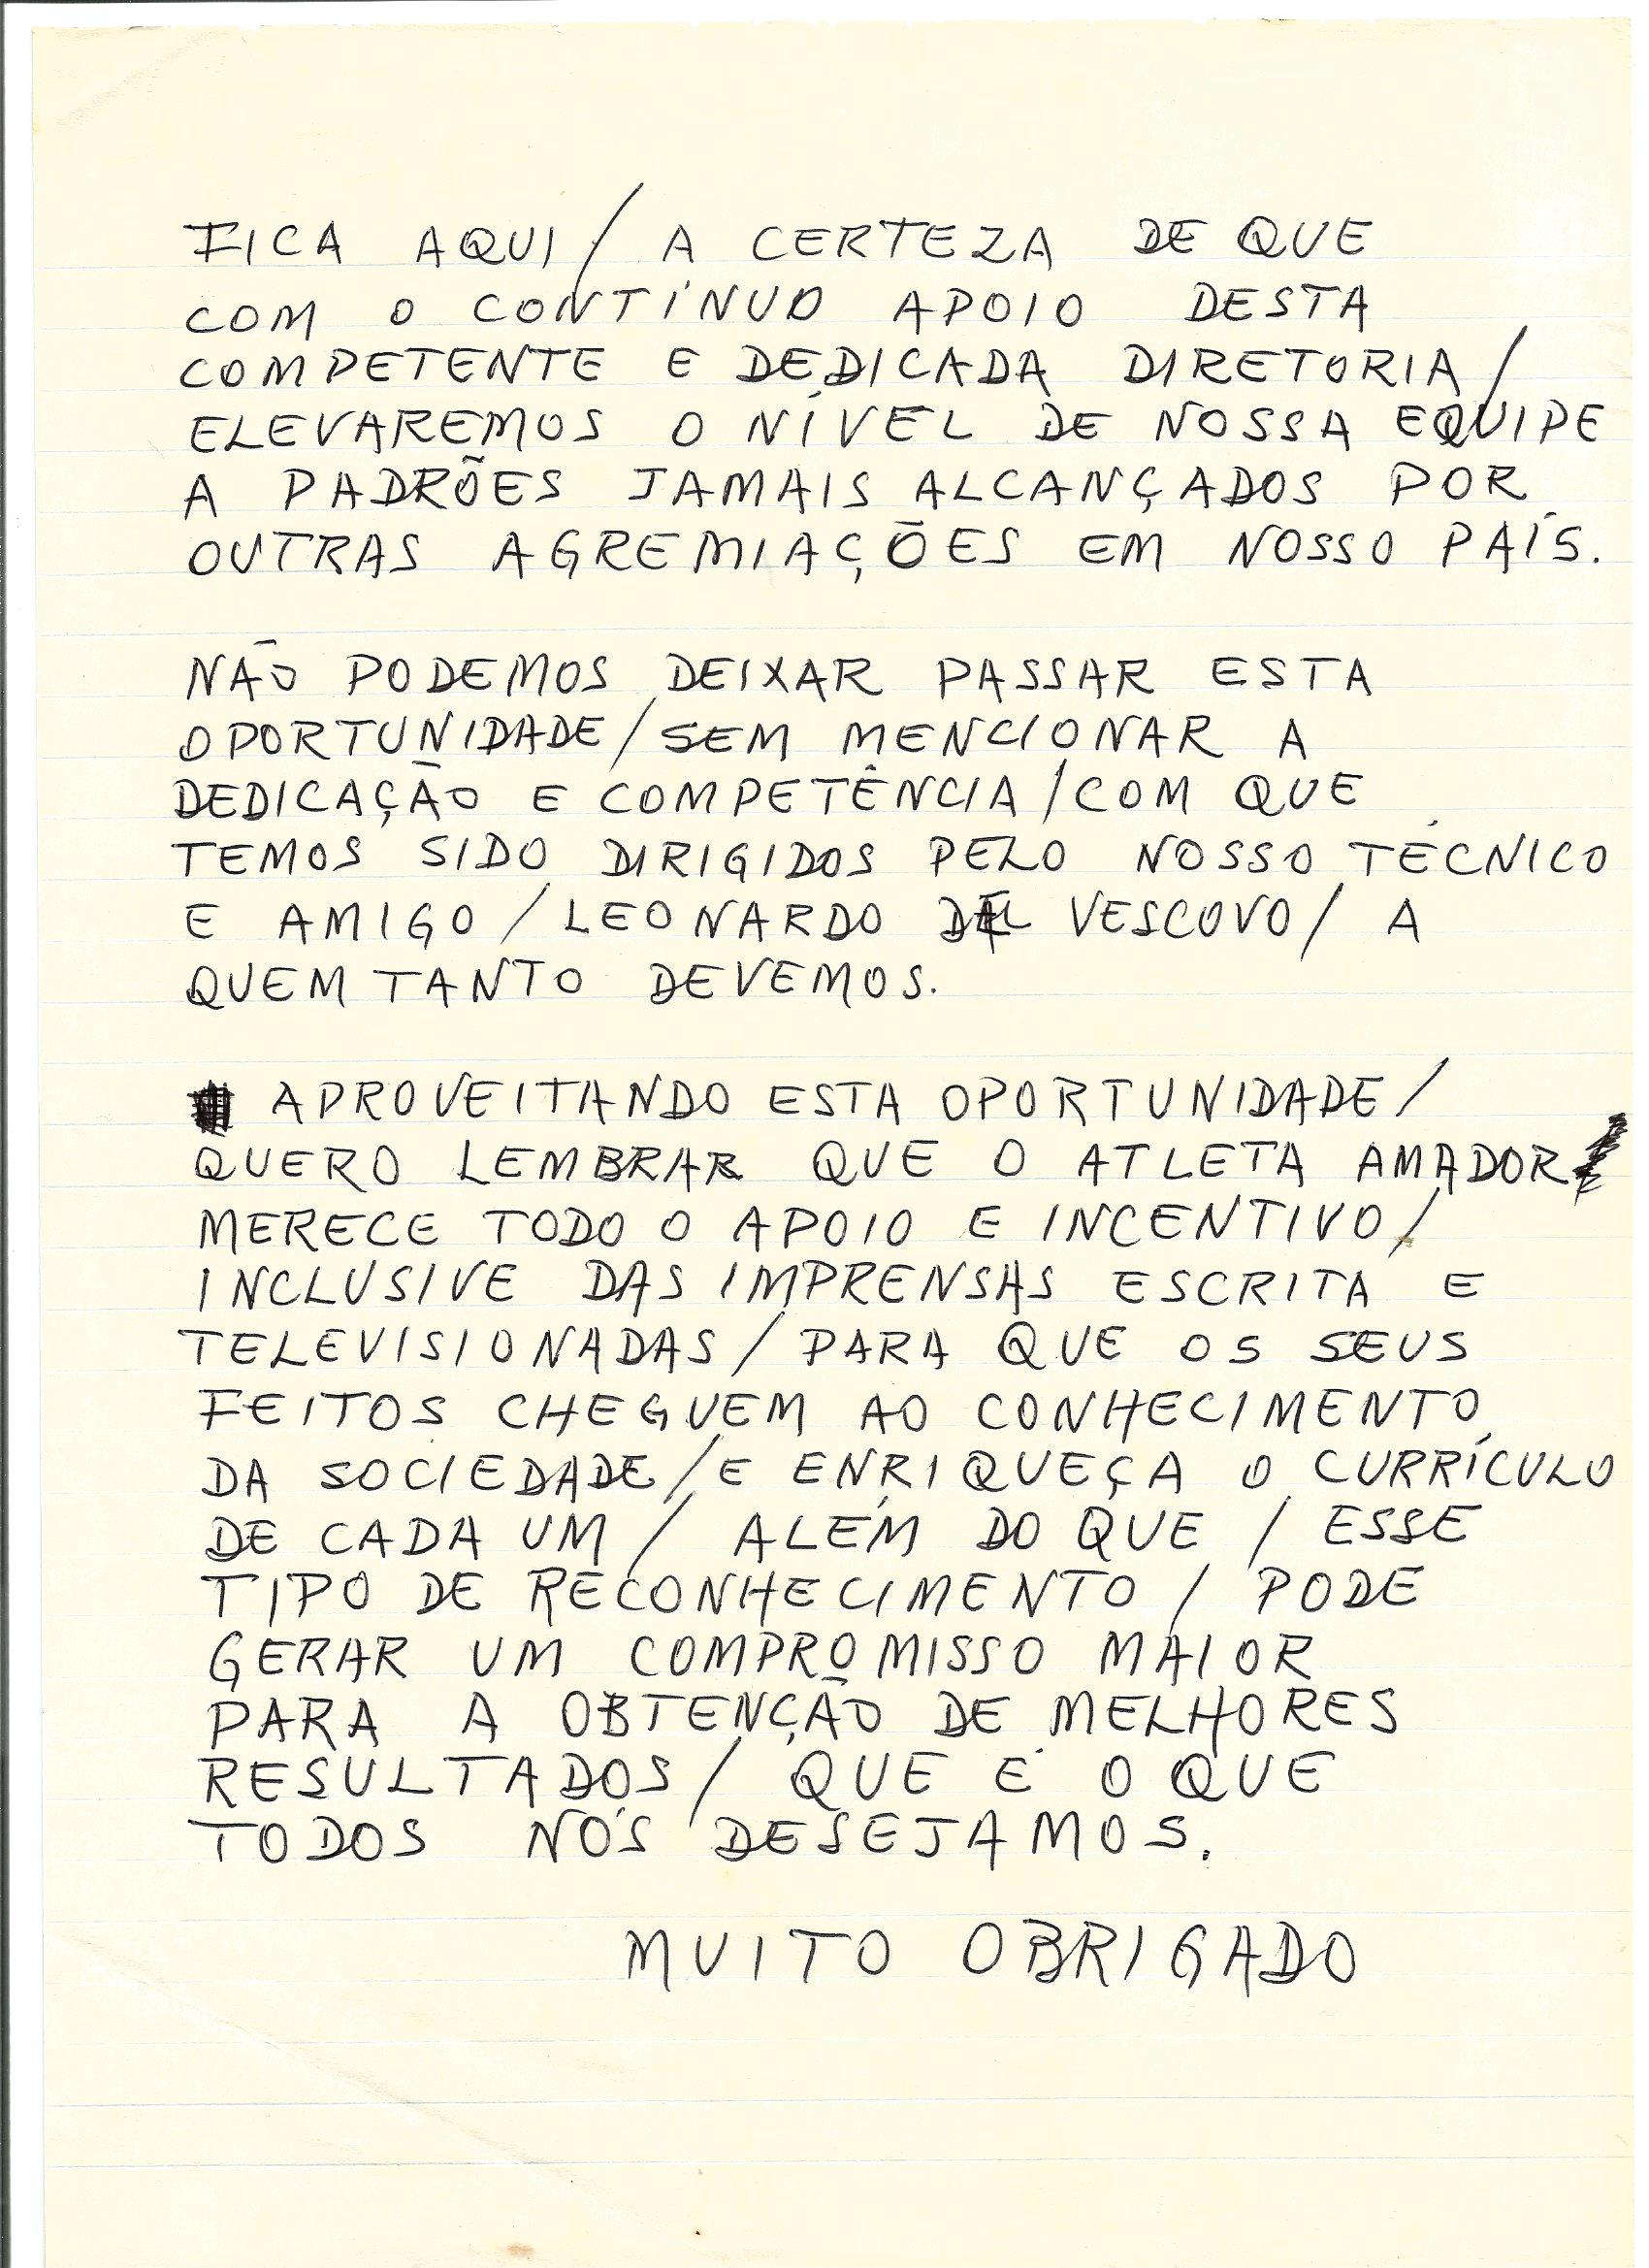 FICA AQUI / A CERTEZA DE QUE
COM O CONTÍNUO APOIO DESTA
COMPETENTE E DEDICADA DIRETORIA /
ELEVAREMOS O NÍVEL DE NOSSA EQUIPE
A PADRÕES JAMAIS ALCANÇADOS POR
OUTRAS AGREMIAÇÕES EM NOSSO PAÍS.
NÃO PODEMOS DEIXAR PASSAR ESTA
OPORTUNIDADE / SEM MENCIONAR A
DEDICAÇÃO E COMPETÊNCIA / COM QUE
TEMOS SIDO DIRIGIDOS PELO NOSSO TÉCNICO
E AMIGO / LEONARDO VESCOVO / A
QUEM TANTO DEVEMOS.
APROVEITANDO ESTA OPORTUNIDADE /
QUERO LEMBRAR QUE O ATLETA AMADOR
MERECE TODO O APOIO E INCENTIVO /
INCLUSIVE DAS IMPRENSAS ESCRITA E
TELEVISIONADAS / PARA QUE OS SEUS
FEITOS CHEGUEM AO CONHECIMENTO
DA SOCIEDADE / E ENRIQUEÇA O CURRÍCULO
DE CADA UM / ALÉM DO QUE / ESSE
TIPO DE RECONHECIMENTO / PODE
GERAR UM COMPROMISSO MAIOR
PARA A OBTENÇÃO DE MELHORES
RESULTADOS / QUE É O QUE
TODOS NÓS DESEJAMOS.
MUITO OBRIGADO